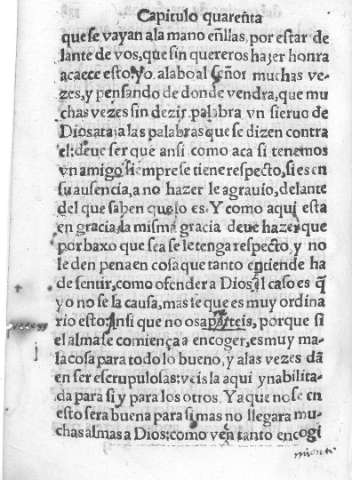 Capitulo quarenta
que se vayan a la mano enllas, por estar de
lante de vos, que sin quereros hazer honra
acaece esto. Yo. alabo al Señor muchas ve-
zes, y pensando de donde vendra, que mu
chas vezes sin dezir palabra vn sieruo de
Dios ataja las palabras que se dizen contra
el: deue ser que ansi como aca si tenemos
vn amigo siempre se tiene respecto, si es en
su ausencia, a no hazer le agrauio, delante
del que saben que lo es. Y como aqui esta
en gracia, la misma gracia deue hazer que
por baxo que sea se le tenga respecto, y no
le den pena en cosa que tanto entiende ha
de sentir, como ofender a Dios. el caso es q̃
yo no se la causa, mas se que es muy ordina
rio esto. Ansi que no os aparteis, porque si
el alma se comiença a encoger, es muy ma-
la cosa para todo lo bueno, y a las vezes dã
en ser escrupulosas: veis la aqui ynabilita-
da para si y para los otros. Ya que no se en
esto sera buena para si mas no llegara mu-
chas almas a Dios: como ven tanto encogi
miento